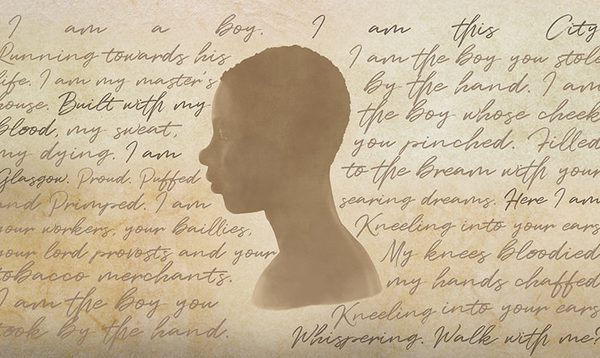 I am a boy.
Running towards his
life. I am my master's
house. Built with my
blood, my sweat,
my dying. I am
Glasgow. Proud. Puffed
and Primped. I am
your workers, your Baillies,
your lord provosts and your
tobacco merchants.
I am the boy you
took by the hand.
I am this City
I am the boy you stole
by the hand. I am
the boy whose cheek
you pinched. Filled
to the bream with your
searing dreams. Here I am
Kneeling into your ears
My knees bloodied
my hands chaffed
Kneeling into your ears
Whispering. Walk with me?